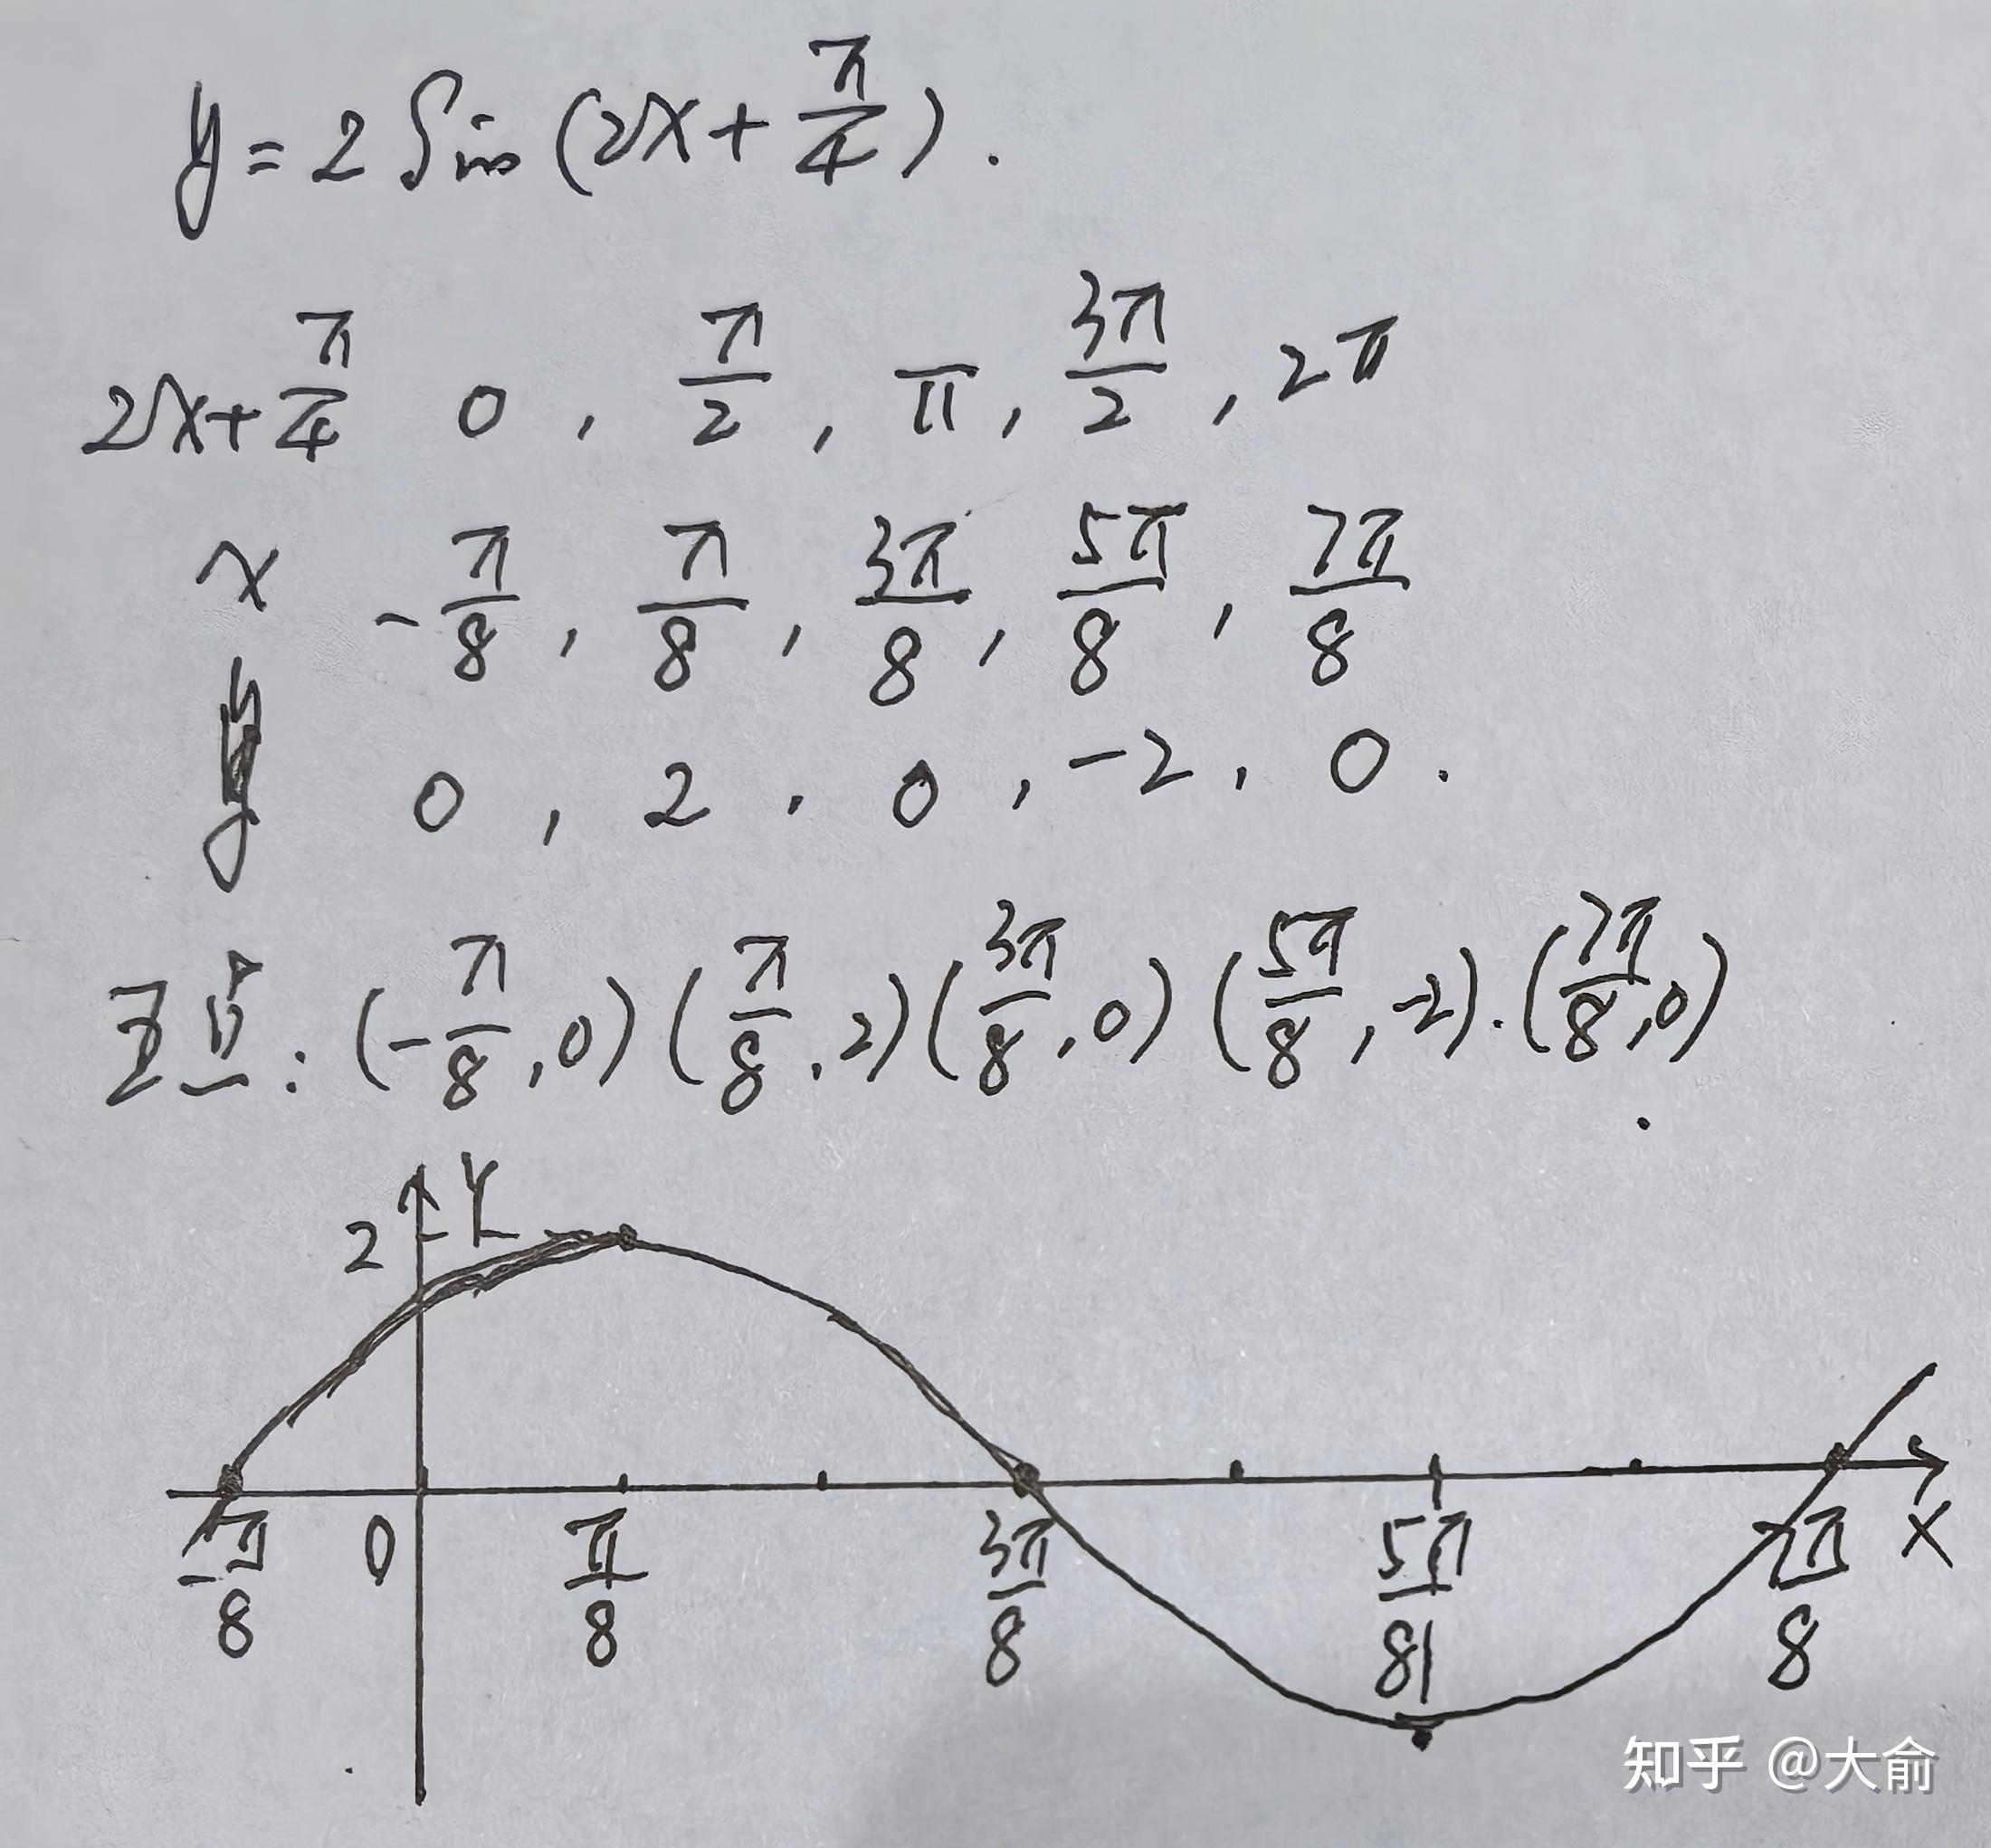 y = 2 Sin (2x + π/4) .
2x + π/4  0 , π/2 , π , 3π/2 , 2π
x  -π/8 , π/8 , 3π/8 , 5π/8 , 7π/8
y  0 , 2 . 0 , -2 , 0 .
五点 : (-π/8 , 0) (π/8 , 2) (3π/8 , 0) (5π/8 , -2) . (7π/8 , 0) .
2 y
-π/8 0 π/8 3π/8 5π/8 7π/8 x
知乎 @大俞